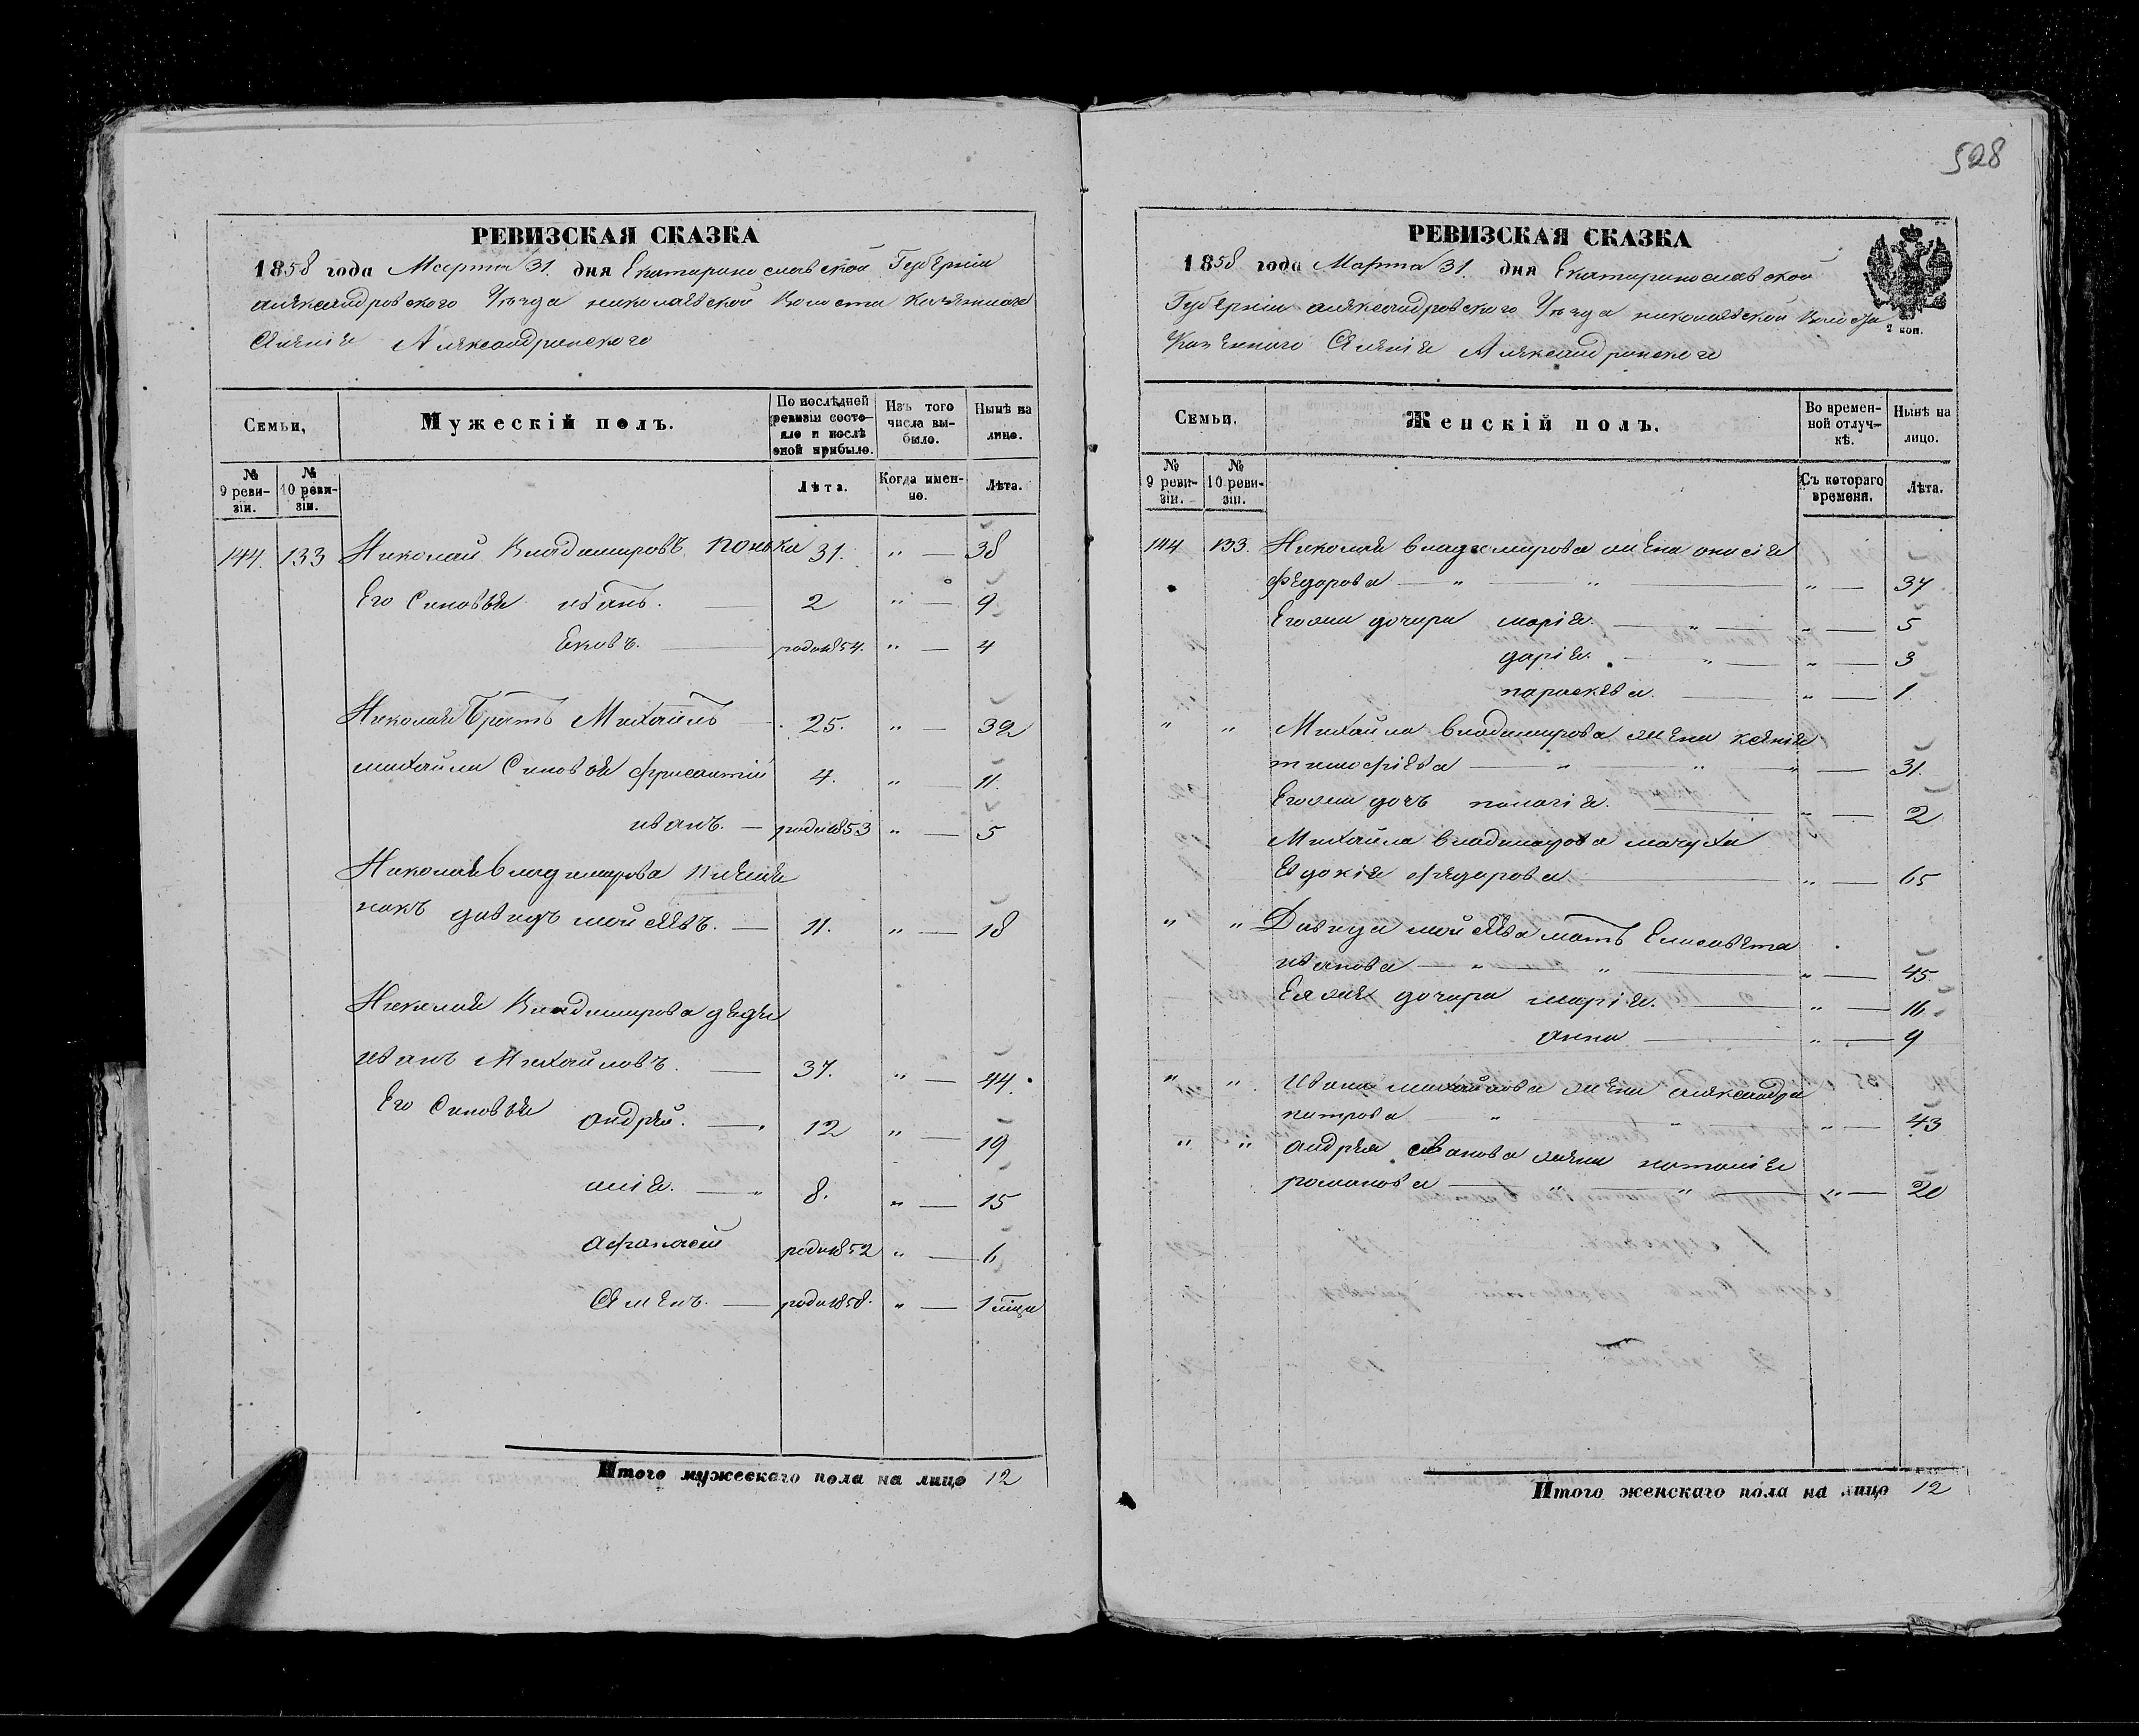 528
РЕВИЗСКАЯ СКАЗКА
1858 года Марта 31. дня Екатеринославской Губерніи
александровского Уезда николаевской Волости Казенного
Селенія Александринского
Семьи,
Мужескій полъ.
По послѣдней ревизіи состояло и послѣ оной прибыло.
Изъ того числа выбыло.
Нынѣ на лицо.
№ 9 ревизіи.
№ 10 ревизіи.
Лѣта.
Когда именно.
Лѣта.
144. 133 Николай Владимировъ Понька 31. " — 38
Его Синовья иванъ. — 2 " — 9
Яковъ. — роди 1854. " — 4
Николая Братъ Михаилъ — 25. " — 32
михайла Синовья 4. " — 11.
иванъ. — роди 1853 " — 5
Николая владимирова племян
никъ давидъ мойсеевъ. — 11. " — 18
Николая Владимирова дядя
иванъ Михайловъ. — 37. " — 44.
Его Синовья андрей. — 12 " — 19
илія. — 8. " — 15
афанасей роди 1852 " — 6
Семенъ. — роди 1858. " — 1 міца
Итого мужескаго пола на лицо 12
РЕВИЗСКАЯ СКАЗКА
1858 года Марта 31. дня Екатеринославской
Губерніи александровского Уезда николаевской Волости
2 коп.
Казенного Селенія Александринского
Семьи.
Женскій полъ.
Во временной отлучкѣ.
Нынѣ на лицо.
№ 9 ревизіи.
№ 10 ревизіи.
Съ котораго времени.
Лѣта.
144 133. Николая владимирова жена анисія
федорова — " — " — " — 37
Егоже дочери марія. — " — " — 5
дарія. — " — " — 3
параскева. — " — 1.
" " Михайла владимирова жена ксенія
тимофіева — " — " — " — 31.
Егоже дочь палагія. — " — 2
Михайла владимирова мачуха
Евдокія федорова — " — 65
" " Давида мойсеева мать Елисавета
иванова — " — " — " — 45.
Еяже дочери марія. — " — 16
анна — " — 9
" " Ивана михайлова жена александра
петрова — " — " — " — 43
" " андрея иванова жена наталія
романова — " — " — " — 20
Итого женскаго пола на лицо 12